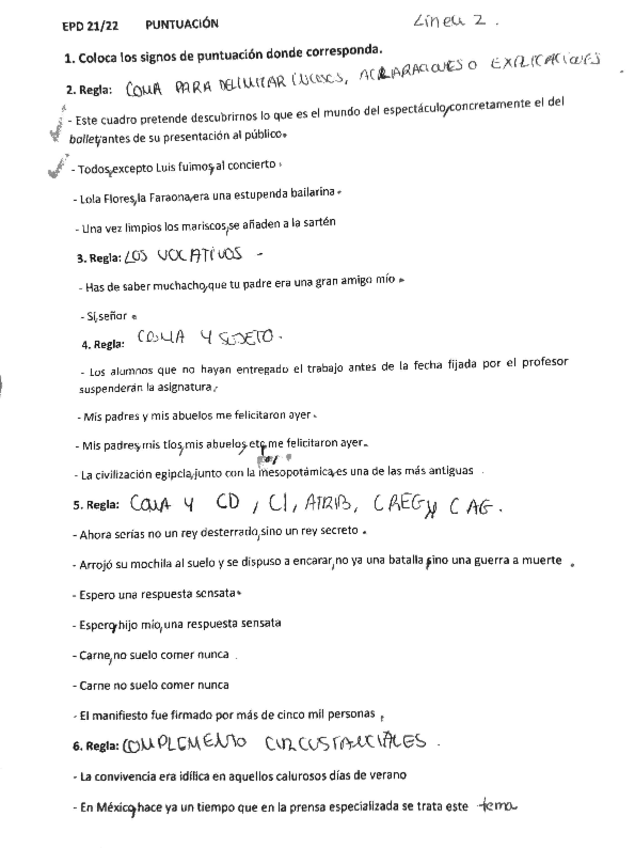 EPD 21/22 PUNTUACIÓN Línea 2.
1. Coloca los signos de puntuación donde corresponda.
2. Regla: COMA PARA DELIMITAR INCISOS, ACLARACIONES O EXPLICACIONES
- Este cuadro pretende descubrirnos lo que es el mundo del espectáculo, concretamente el del
ballet, antes de su presentación al público.
- Todos, excepto Luis fuimos, al concierto.
- Lola Flores, la Faraona, era una estupenda bailarina.
- Una vez limpios los mariscos, se añaden a la sartén
3. Regla: LOS VOCATIVOS -
- Has de saber muchacho, que tu padre era una gran amigo mío.
- Sí, señor.
4. Regla: COMA Y SUJETO.
- Los alumnos que no hayan entregado el trabajo antes de la fecha fijada por el profesor
suspenderán la asignatura.
- Mis padres y mis abuelos me felicitaron ayer.
- Mis padres, mis tíos, mis abuelos, etc, me felicitaron ayer.
- La civilización egipcia, junto con la mesopotámica, es una de las más antiguas.
5. Regla: COMA Y CD, CI, ATRIB, CREG, Y C AG.
- Ahora serías no un rey desterrado, sino un rey secreto.
- Arrojó su mochila al suelo y se dispuso a encarar, no ya una batalla, sino una guerra a muerte.
- Espero una respuesta sensata.
- Espero, hijo mío, una respuesta sensata
- Carne, no suelo comer nunca.
- Carne no suelo comer nunca
- El manifiesto fue firmado por más de cinco mil personas.
6. Regla: COMPLEMENTO CIRCUSTANCIALES.
- La convivencia era idílica en aquellos calurosos días de verano
- En México, hace ya un tiempo que en la prensa especializada se trata este tema